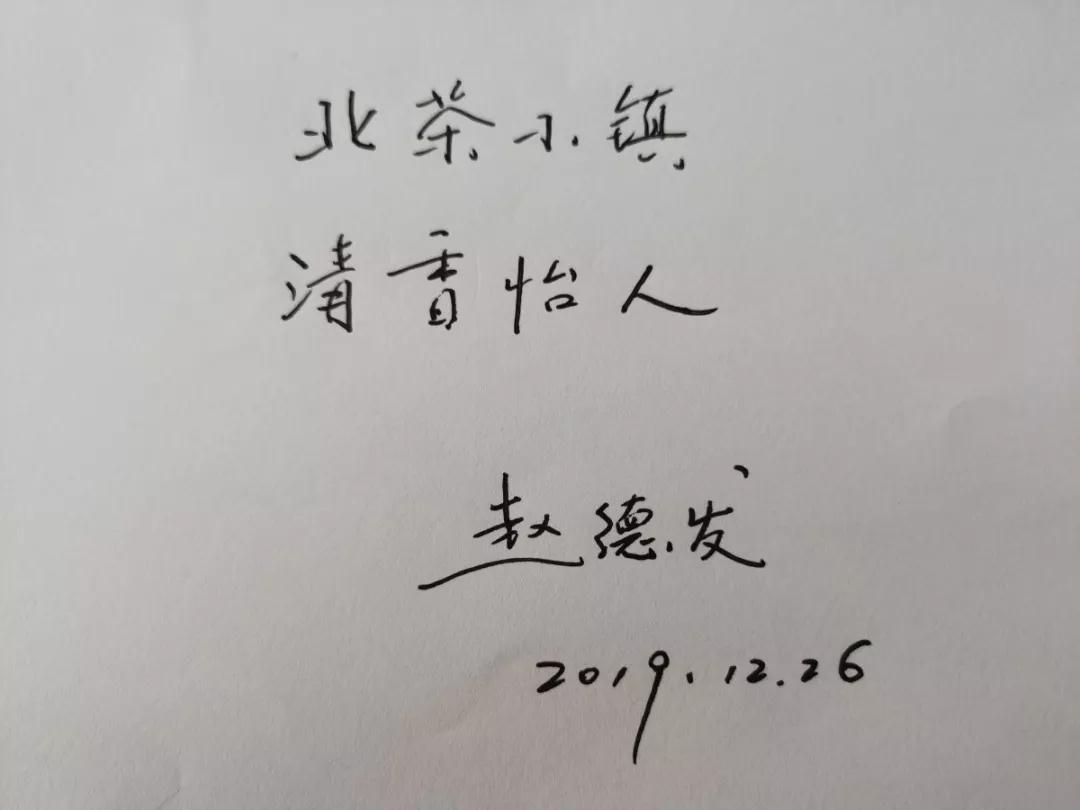 北茶小镇
清香怡人
赵德发
2019.12.26